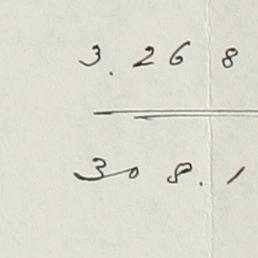 3.268
308.1